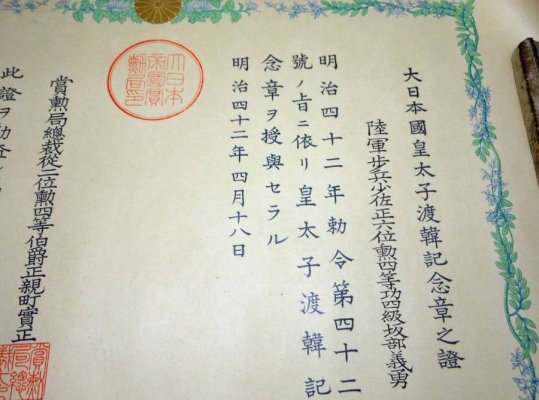 大日本國皇太子渡韓記念章之證
陸軍步兵少佐正六位勳四等功四級坂部義勇
明治四十二年勅令第四十二
號ノ旨ニ依リ皇太子渡韓記
念章ヲ授與セラル
明治四十二年四月十八日
大日本
帝國賞
勳局印
賞勳局總裁從二位勳四等伯爵正親町實正
賞勳
局總
此證ヲ勘査